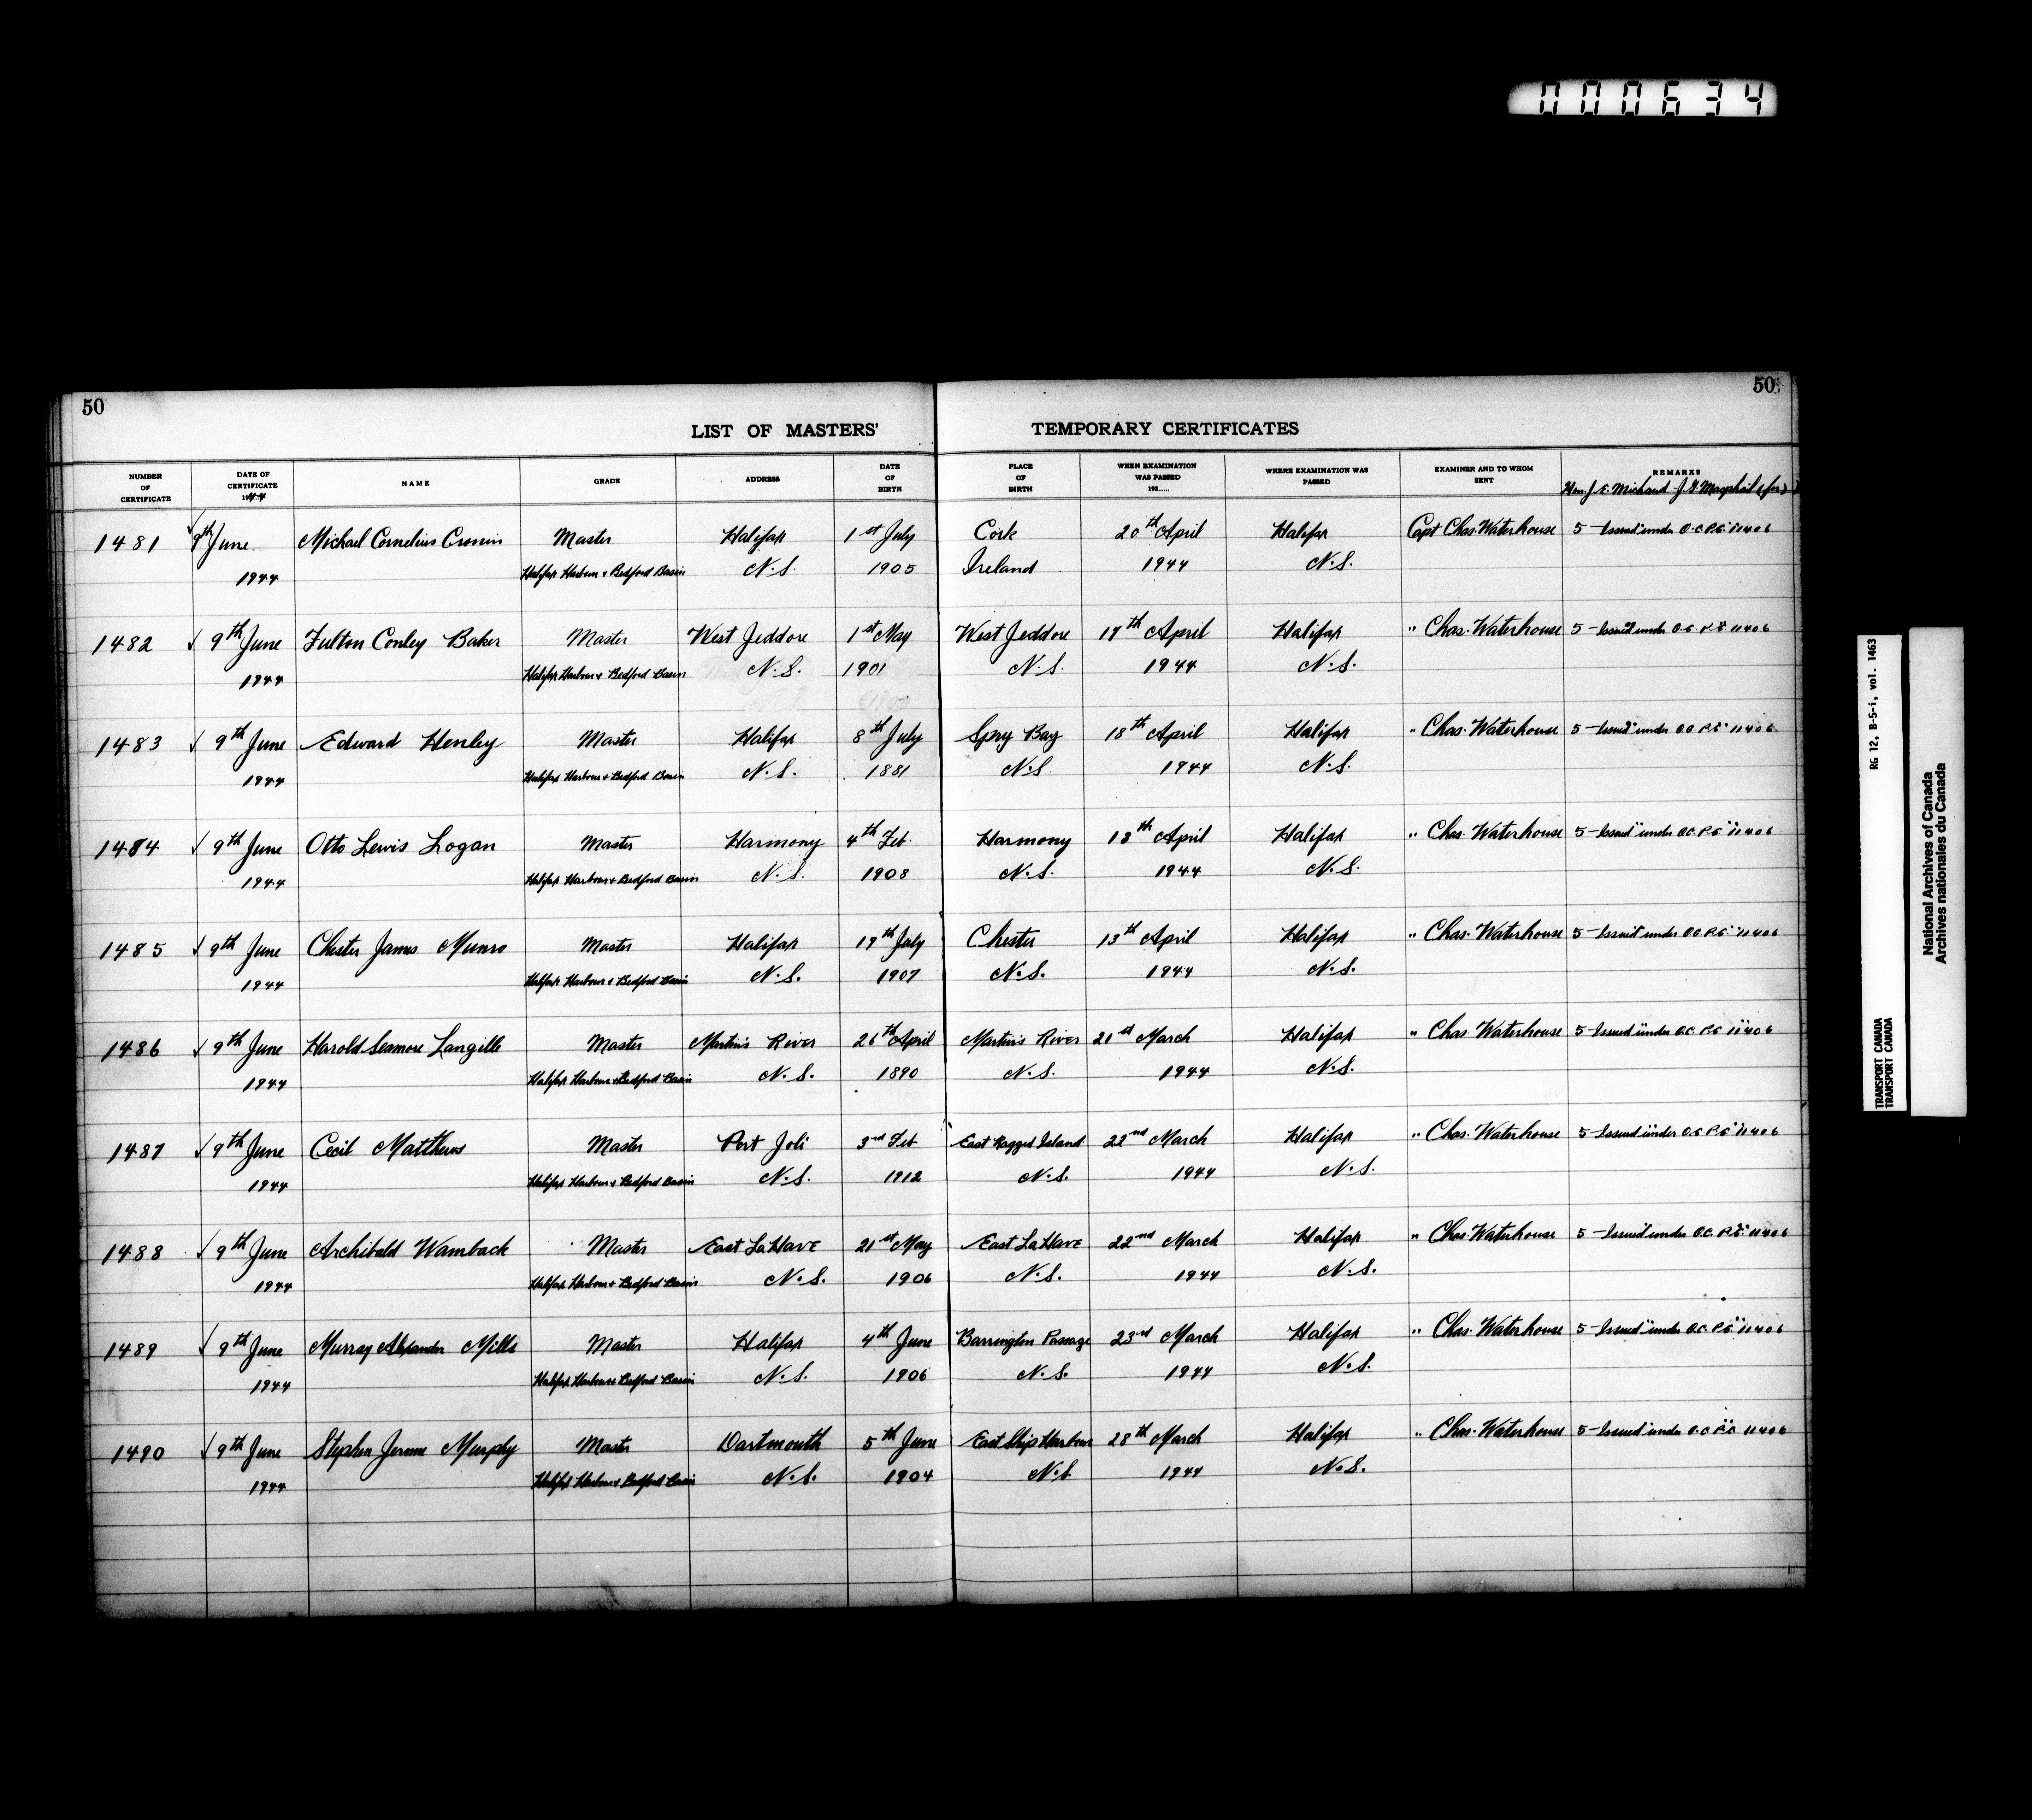 000634
50
50
LIST OF MASTERS' TEMPORARY CERTIFICATES
NUMBER OF CERTIFICATE
DATE OF CERTIFICATE 1944
NAME
GRADE
ADDRESS
DATE OF BIRTH
PLACE OF BIRTH
WHEN EXAMINATION WAS PASSED 193.....
WHERE EXAMINATION WAS PASSED
EXAMINER AND TO WHOM SENT
REMARKS
Hon. J. E. Michaud - J. G. Macphail (for)
1481 9th June Michael Cornelius Cronin Master Halifax 1st July Cork 20th April Halifax Capt Chas. Waterhouse 5 - Issued under O.C. P.C. 11406
1944 Halifax Harbour & Bedford Basin N.S. 1905 Ireland 1944 N.S.
1482 9th June Fulton Conley Baker Master West Jeddore 1st May West Jeddore 17th April Halifax " Chas. Waterhouse 5 - Issued under O.C. P.C. 11406
1944 Halifax Harbour & Bedford Basin N.S. 1901 N.S. 1944 N.S.
1483 9th June Edward Henley Master Halifax 8th July Spry Bay 18th April Halifax " Chas. Waterhouse 5 - Issued under O.C. P.C. 11406
1944 Halifax Harbour & Bedford Basin N.S. 1881 N.S. 1944 N.S.
1484 9th June Otto Lewis Logan Master Harmony 4th Feb. Harmony 18th April Halifax " Chas. Waterhouse 5 - Issued under O.C. P.C. 11406
1944 Halifax Harbour & Bedford Basin N.S. 1908 N.S. 1944 N.S.
1485 9th June Chester James Munro Master Halifax 19th July Chester 13th April Halifax " Chas. Waterhouse 5 - Issued under O.C. P.C. 11406
1944 Halifax Harbour & Bedford Basin N.S. 1907 N.S. 1944 N.S.
1486 9th June Harold Seamore Langille Master Martin's River 26th April Martin's River 21st March Halifax " Chas. Waterhouse 5 - Issued under O.C. P.C. 11406
1944 Halifax Harbour & Bedford Basin N.S. 1890 N.S. 1944 N.S.
1487 9th June Cecil Matthews Master Port Joli 3rd Feb East Ragged Island 22nd March Halifax " Chas. Waterhouse 5 - Issued under O.C. P.C. 11406
1944 Halifax Harbour & Bedford Basin N.S. 1912 N.S. 1944 N.S.
1488 9th June Archibald Wamback Master East LaHave 21st May East LaHave 22nd March Halifax " Chas. Waterhouse 5 - Issued under O.C. P.C. 11406
1944 Halifax Harbour & Bedford Basin N.S. 1906 N.S. 1944 N.S.
1489 9th June Murray Alexander Mills Master Halifax 4th June Barrington Passage 23rd March Halifax " Chas. Waterhouse 5 - Issued under O.C. P.C. 11406
1944 Halifax Harbour & Bedford Basin N.S. 1906 N.S. 1944 N.S.
1490 9th June Stephen Jerome Murphy Master Dartmouth 5th June East Ship Harbour 28th March Halifax " Chas. Waterhouse 5 - Issued under O.C. P.C. 11406
1944 Halifax Harbour & Bedford Basin N.S. 1904 N.S. 1944 N.S.
RG 12, B-5-i, vol. 1463
TRANSPORT CANADA
TRANSPORT CANADA
National Archives of Canada
Archives nationales du Canada